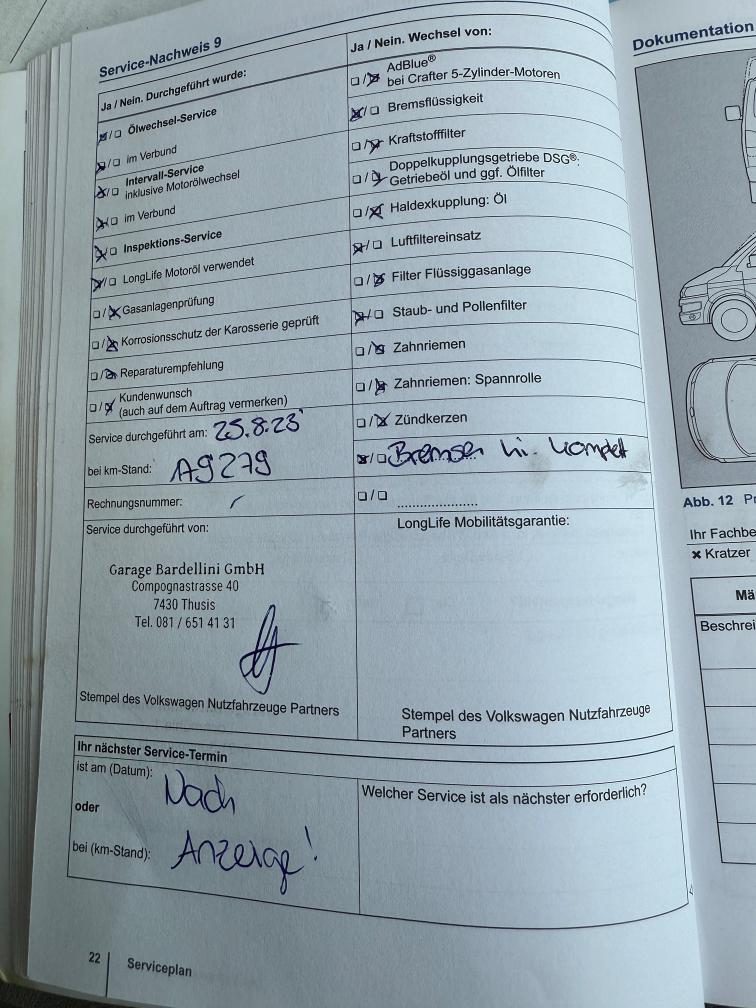 Service-Nachweis 9
Ja / Nein. Durchgeführt wurde:
☒/☐ Ölwechsel-Service
☒/☐ im Verbund
☒/☐ Intervall-Service
inklusive Motorölwechsel
☒/☐ im Verbund
☒/☐ Inspektions-Service
☒/☐ LongLife Motoröl verwendet
☐/☒ Gasanlagenprüfung
☐/☒ Korrosionsschutz der Karosserie geprüft
☐/☒ Reparaturempfehlung
☐/☒ Kundenwunsch
(auch auf dem Auftrag vermerken)
Service durchgeführt am: 25.8.23
bei km-Stand:
Rechnungsnummer:
Service durchgeführt von:
Garage Bardellini GmbH
Compognastrasse 40
7430 Thusis
Tel. 081 / 651 41 31
Stempel des Volkswagen Nutzfahrzeuge Partners
Ja / Nein. Wechsel von:
☐/☒ AdBlue®
bei Crafter 5-Zylinder-Motoren
☒/☐ Bremsflüssigkeit
☐/☒ Kraftstofffilter
☐/☒ Doppelkupplungsgetriebe DSG®:
Getriebeöl und ggf. Ölfilter
☐/☒ Haldexkupplung: Öl
☒/☐ Luftfiltereinsatz
☐/☒ Filter Flüssiggasanlage
☒/☐ Staub- und Pollenfilter
☐/☒ Zahnriemen
☐/☒ Zahnriemen: Spannrolle
☐/☒ Zündkerzen
☒/☐ Bremsen hi. komplett
☐/☐ ....................
LongLife Mobilitätsgarantie:
Stempel des Volkswagen Nutzfahrzeuge
Partners
Ihr nächster Service-Termin
ist am (Datum): Nach
oder
bei (km-Stand): Anzeige!
Welcher Service ist als nächster erforderlich?
22 Serviceplan
Dokumentation
Abb. 12
Ihr Fachbe
✖ Kratzer
Mä
Beschrei